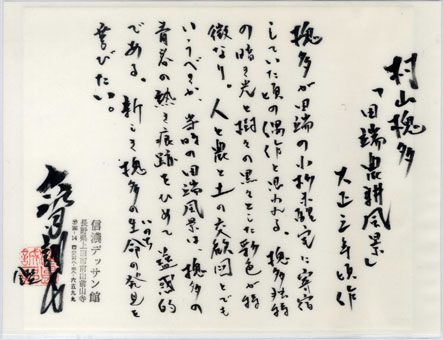 村山槐多
「田端農耕風景」
大正三年頃作
槐多が田端の小杉未醒宅に寄宿
していた頃の偶作と思われる。槐多独特
の暗き光と樹々の黒々とした彩色が特
徴なり。人と農と土の交歓図とでも
いうべきか、当時の田端風景は、槐多の
青春の熱き痕跡をひめて蠱惑的
である。新しき槐多の生命の発見を
いのち
喜びたい。
信濃デッサン館
長野県上田市
前山寺